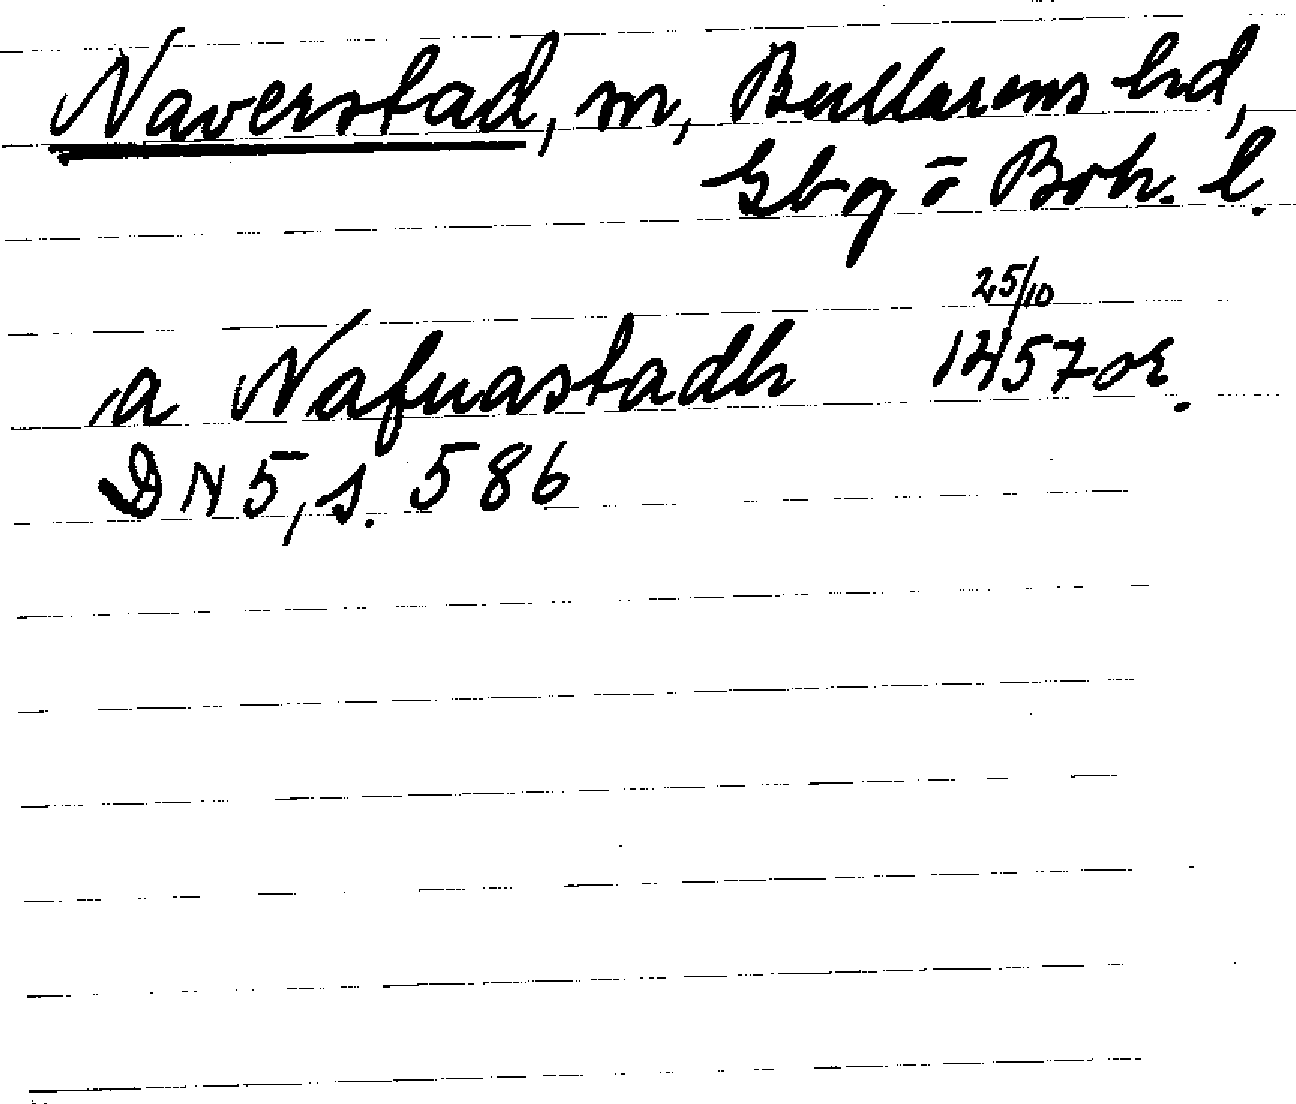 Naverstad, sn, Bullarens hd,
Gbg o Boh. l.
a Nafuastadh 25/10 1457 or.
DN 5, s. 586